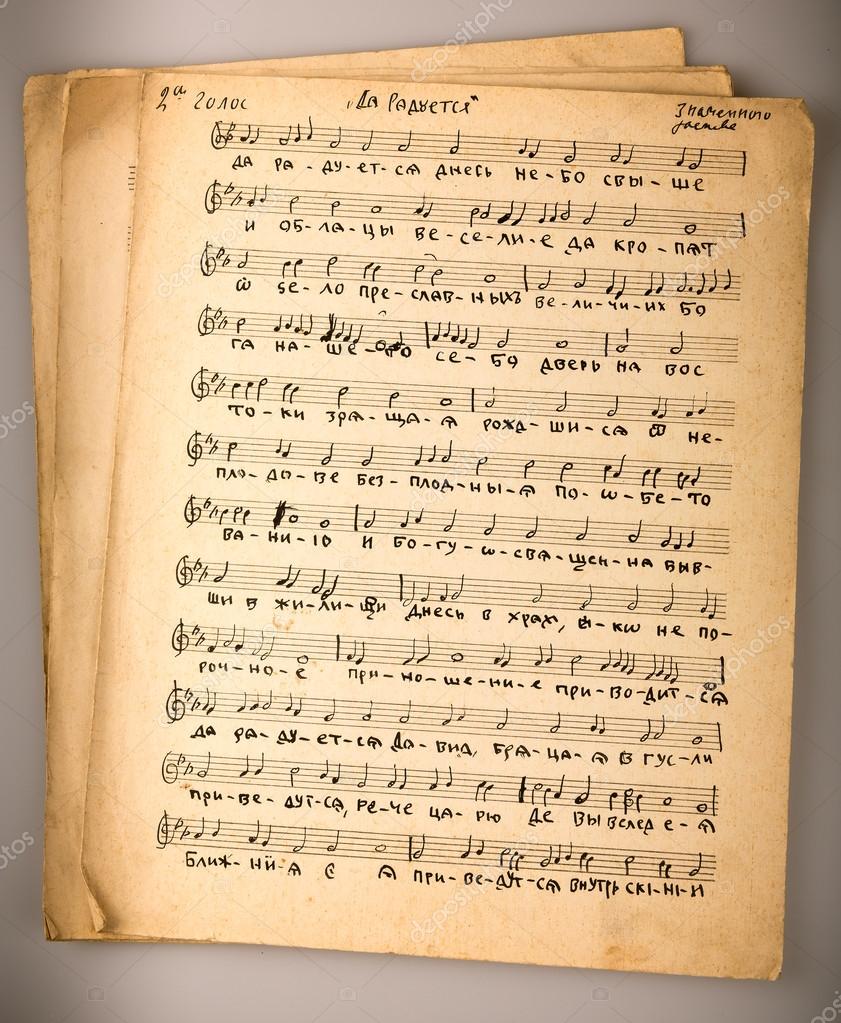 2а голос „Да радуется“ Знаменного
да ра - ду - ет - сѧ днесь не - бо свы - ше
и об - ла - цы ве - се - ли - е да кро - пѧт
ѿ ѕе - ло пре - слав - ныхъ ве - ли - чи - их бо
га на - ше - го се - бо дверь на вос
то - ки зрѧ - ща - ѧ рожд - ши - сѧ ѿ не -
пло - до - ве без - плод - ны - ѧ по - ѡ - бе - то
ва - ни - ю и бо - гу - ѡ - свѧ - щен - на быв -
ши в жи - ли - щи днесь в храм, ѧ - кѡ не по -
роч - но - е при - но - ше - ни - е при - во - дит - сѧ
да ра - ду - ет - сѧ да - вид, брѧ - ца - ѧ в гус - ли
при - ве - дут - сѧ, ре - че ца - рю де вы вслед е - ѧ
ближ - нї - ѧ е ѧ при - ве - дут - сѧ внутрь скі - ні - и
depositphotos